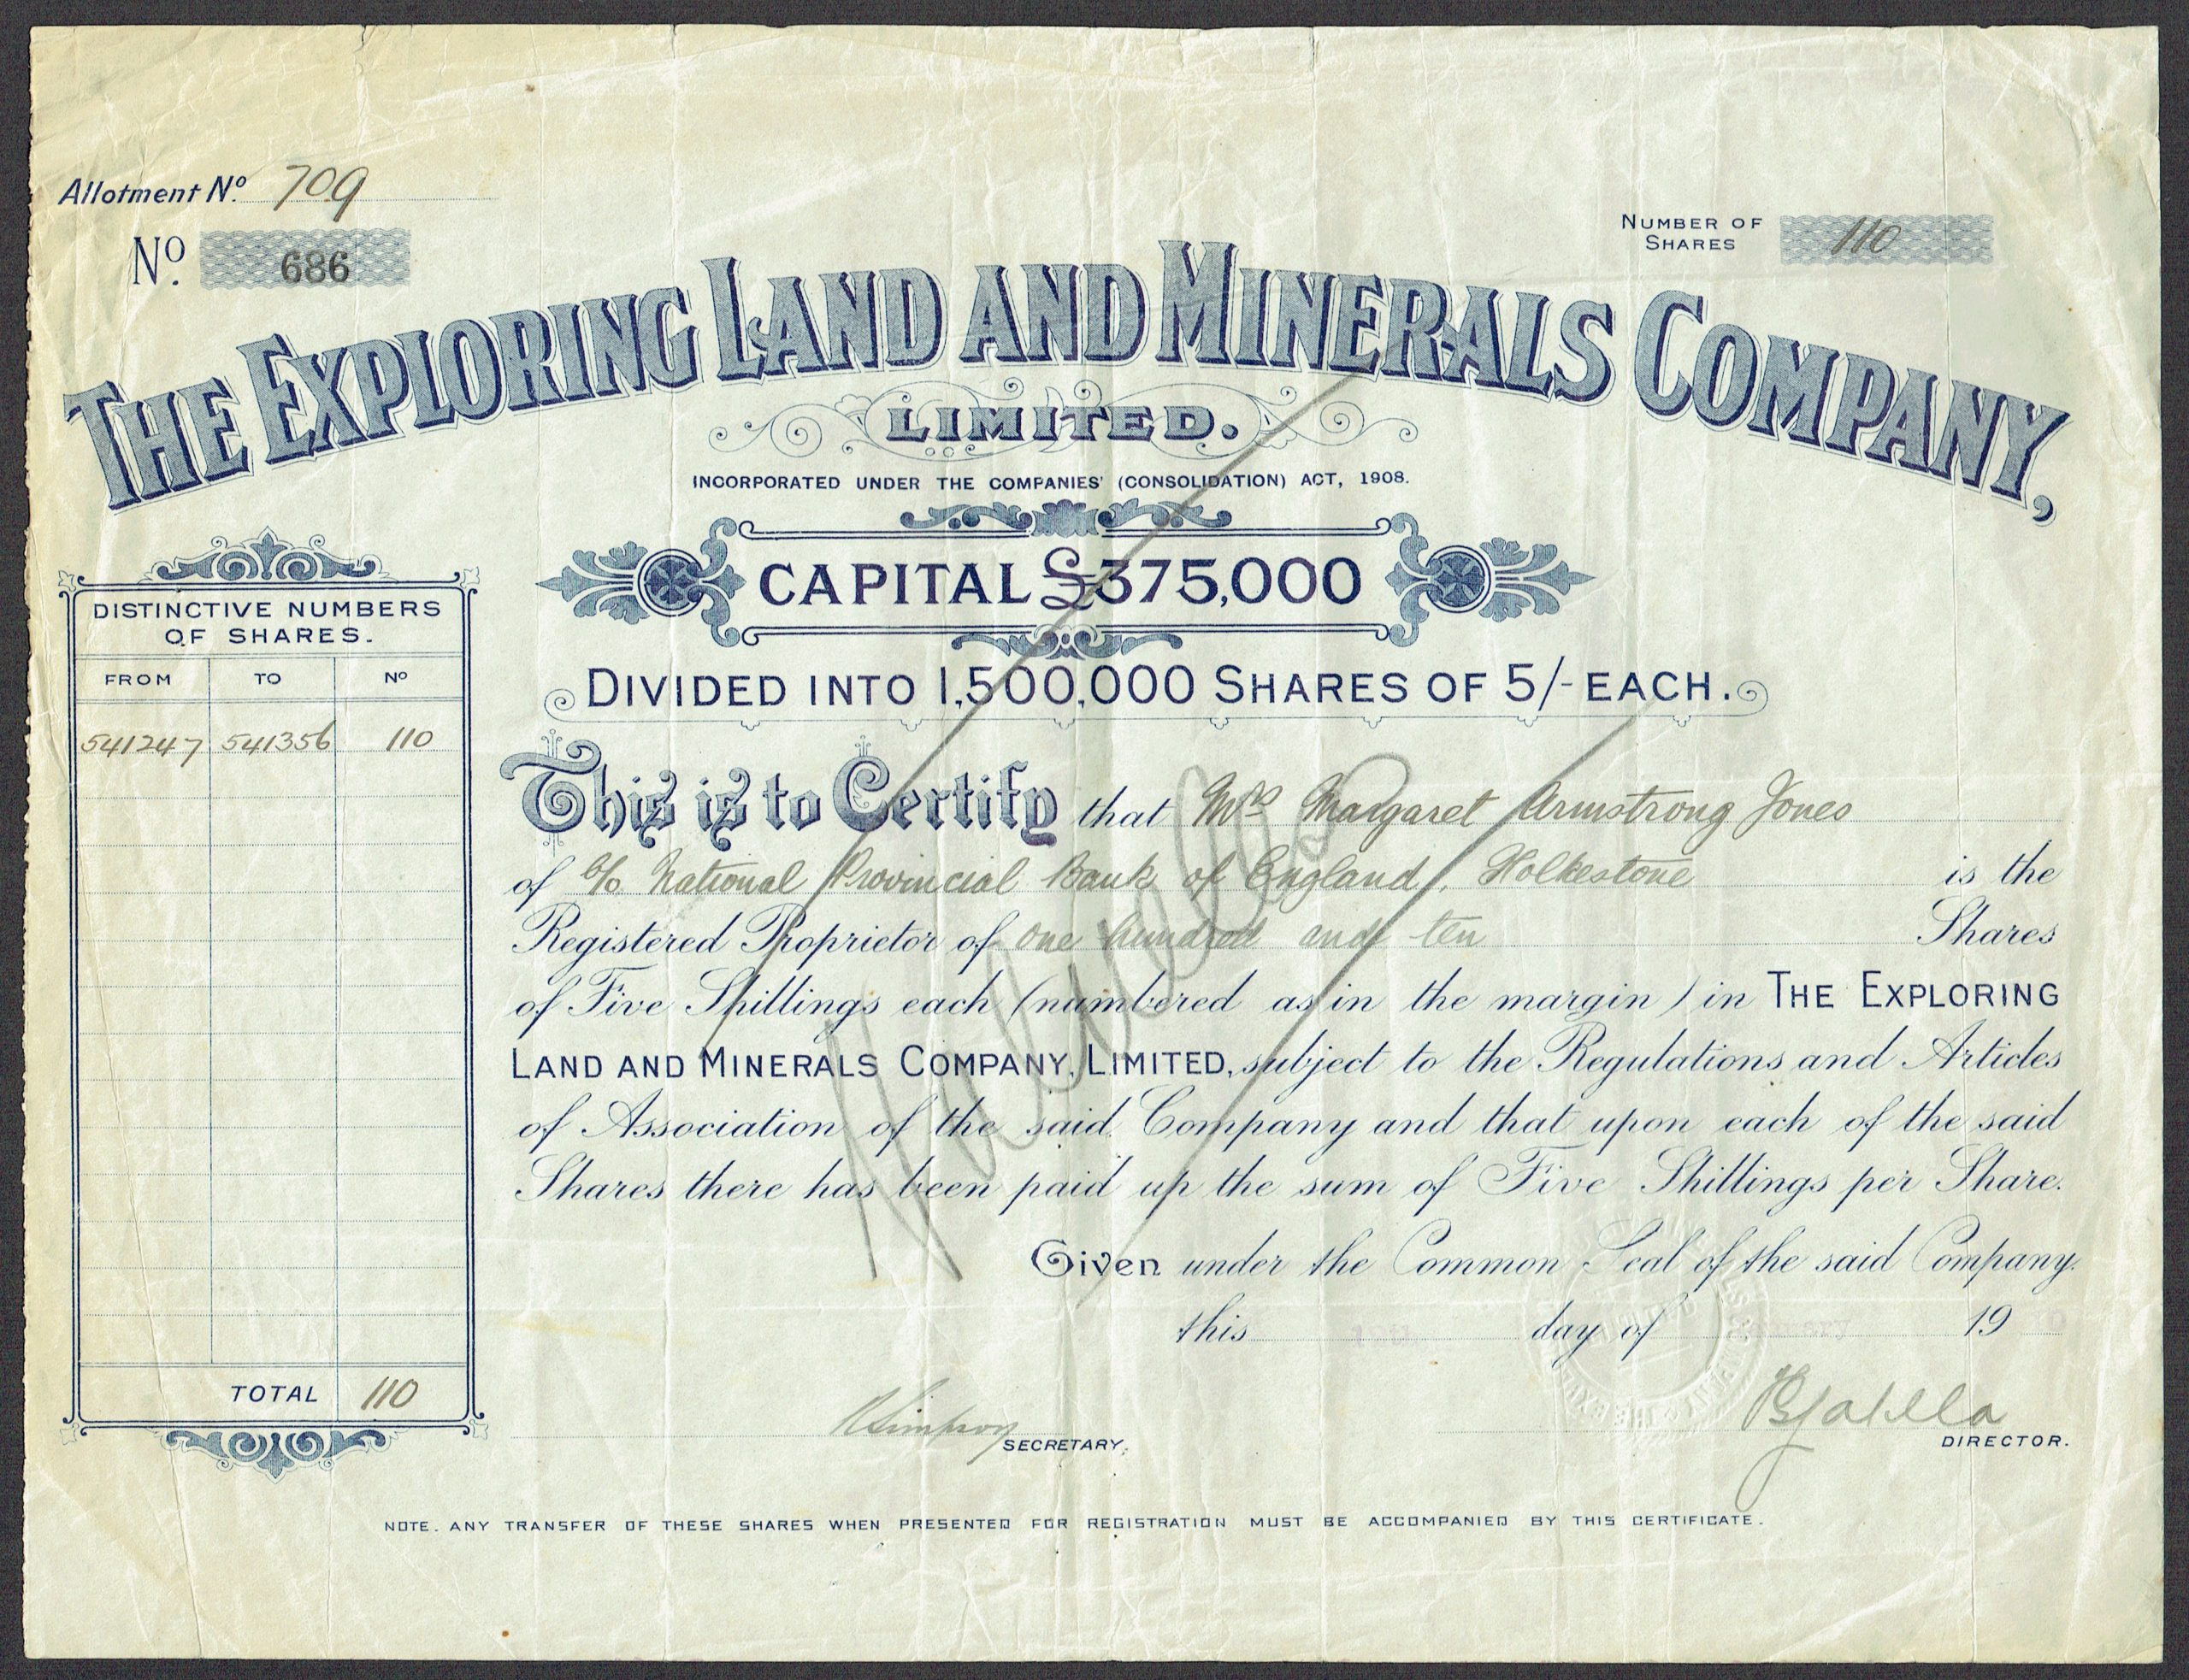 Allotment No. 709
No. 686
NUMBER OF
SHARES 110
THE EXPLORING LAND AND MINERALS COMPANY,
LIMITED.
INCORPORATED UNDER THE COMPANIES' (CONSOLIDATION) ACT, 1908.
CAPITAL £375,000
DIVIDED INTO 1,500,000 SHARES OF 5/- EACH.
DISTINCTIVE NUMBERS
OF SHARES.
FROM TO No
541247 541356 110
TOTAL 110
This is to Certify that Mrs Margaret Armstrong Jones
of c/o National Provincial Bank of England, Folkestone is the
Registered Proprietor of one hundred and ten Shares
of Five Shillings each (numbered as in the margin) in THE EXPLORING
LAND AND MINERALS COMPANY, LIMITED, subject to the Regulations and Articles
of Association of the said Company and that upon each of the said
Shares there has been paid up the sum of Five Shillings per Share.
Given under the Common Seal of the said Company.
this day of 19
SECRETARY.
DIRECTOR.
NOTE. ANY TRANSFER OF THESE SHARES WHEN PRESENTED FOR REGISTRATION MUST BE ACCOMPANIED BY THIS CERTIFICATE.